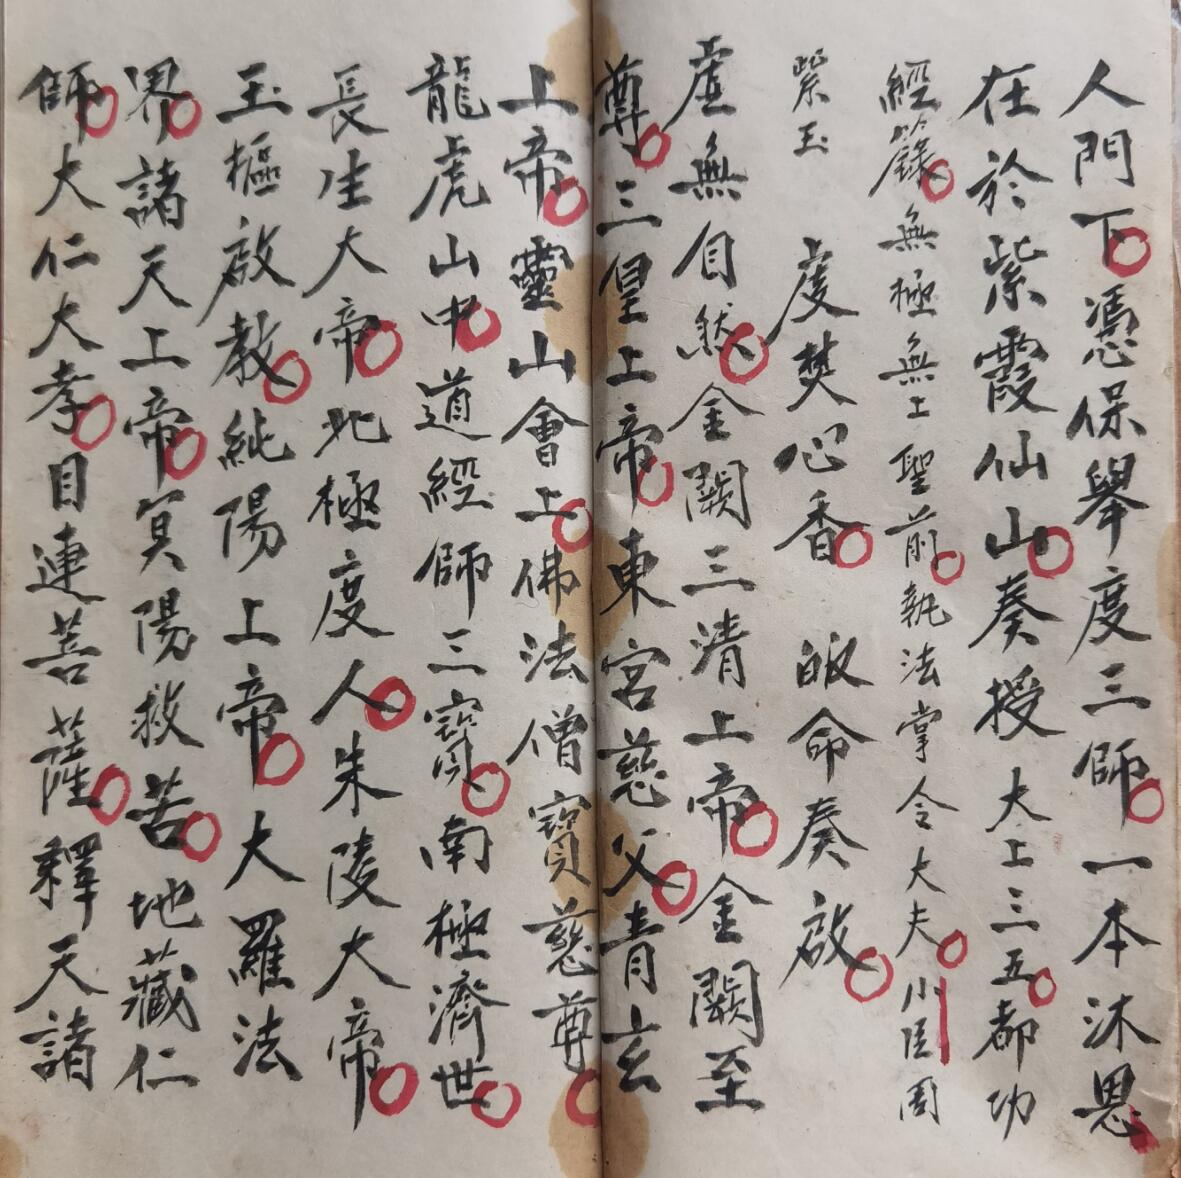 人門下憑保舉度三師一本沐恩
在於紫霞仙山奏授太上三五都功
經籙無極無上聖前執法掌令大夫小臣周
紫玉 虔焚心香 皈命奏啟
虛無自然金闕三清上帝金闕至
尊三皇上帝東宮慈父青玄
上帝靈山會上佛法僧寶慈尊
龍虎山中道經師三寶南極濟世
長生大帝北極度人朱陵大帝
玉樞啟教純陽上帝大羅法
界諸天上帝冥陽救苦地藏仁
師大仁大孝目連菩薩釋天諸